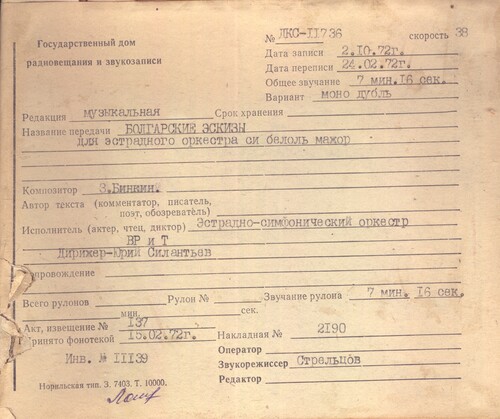 Государственный дом
радиовещания и звукозаписи
№ ДКС-11736 скорость 38
Дата записи 2.10.72г.
Дата переписи 24.02.72г.
Общее звучание 7 мин.16 сек.
Вариант моно дубль
Редакция музыкальная Срок хранения
Название передачи БОЛГАРСКИЕ ЭСКИЗЫ
для эстрадного оркестра си бемоль мажор
Композитор З.Бинкин.
Автор текста (комментатор, писатель,
поэт, обозреватель)
Исполнитель (актер, чтец, диктор) Эстрадно-симфонический оркестр
ВР и Т
Дирижер-Юрий Силантьев
Сопровождение
Всего рулонов Рулон № Звучание рулона 7 мин. 16 сек.
мин. сек.
Акт, извещение № 137
Принято фонотекой 15.02.72г. Накладная № 2190
Инв. № 11139 Оператор
Звукорежиссер Стрельцов
Редактор
Норильская тип. З. 7403. Т. 10000.